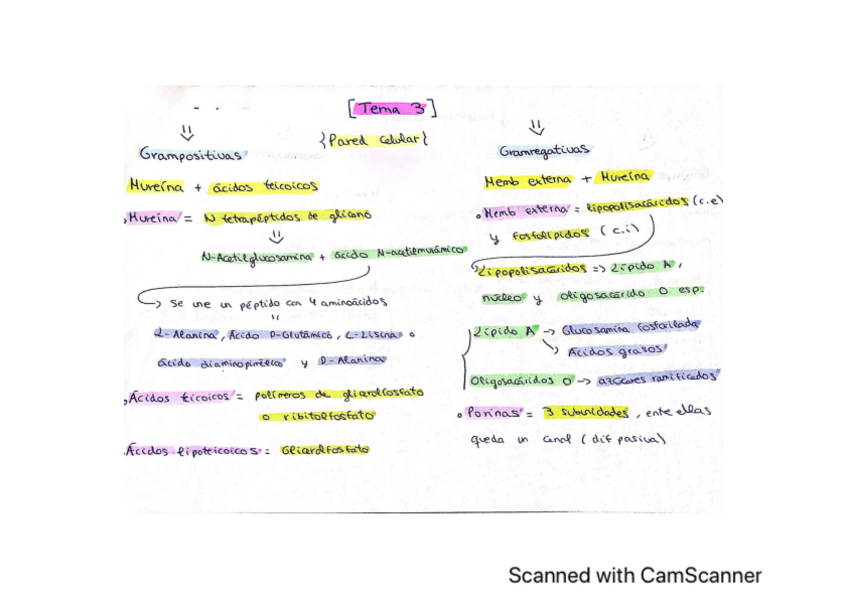 [Tema 3]
{Pared celular{
⇓
Grampositivas
Mureína + ácidos teicoicos
. Mureína = N tetrapéptidos de glicano
⇓
N-Acetilglucosamina + ácido N-acetilmurámico
↳ Se une un péptido con 4 aminoácidos
"
L-Alanina, Ácido D-Glutámico, L-Lisina o
ácido diaminopimélico y D-Alanina
. Ácidos teicoicos = polímeros de glicerolfosfato
o ribitolfosfato
. Ácidos lipoteicoicos = Glicerolfosfato
⇓
Gramnegativas
Memb externa + Mureína
. Memb externa = lipopolisacáridos (c.e)
y fosfolípidos (c.i)
Lipopolisacáridos => Lípido A,
núcleo y oligosacárido O esp.
Lípido A → Glucosamina fosforilada
↘ Ácidos grasos
Oligosacáridos O → azúcares ramificados
. Porinas = 3 subunidades, ente ellas
queda un canal (dif pasiva)
Scanned with CamScanner